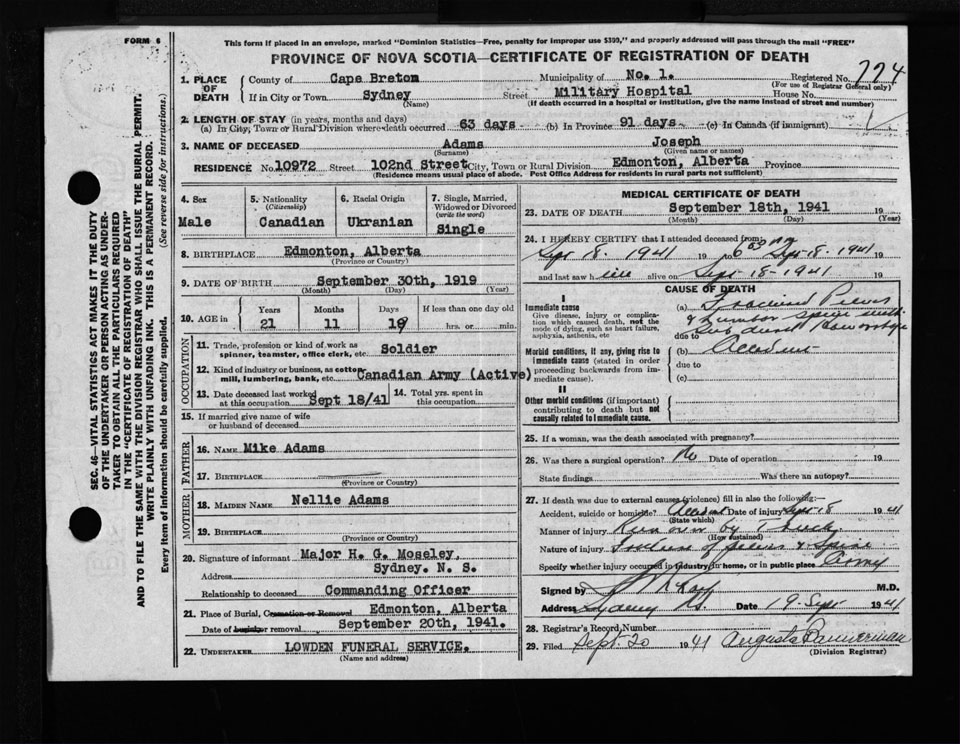 FORM 6
This form if placed in an envelope, marked "Dominion Statistics—Free, penalty for improper use $300," and properly addressed will pass through the mail "FREE"
PROVINCE OF NOVA SCOTIA—CERTIFICATE OF REGISTRATION OF DEATH
SEC. 46—VITAL STATISTICS ACT MAKES IT THE DUTY
OF THE UNDERTAKER OR PERSON ACTING AS UNDER-
TAKER TO OBTAIN ALL THE PARTICULARS REQUIRED
IN THE "CERTIFICATE OF REGISTRATION OF DEATH"
AND TO FILE THE SAME WITH THE DIVISION REGISTRAR WHO SHALL ISSUE THE BURIAL PERMIT.
WRITE PLAINLY WITH UNFADING INK. THIS IS A PERMANENT RECORD.
Every item of information should be carefully supplied. (See reverse side for instructions.)
1. PLACE OF DEATH County of Cape Breton Municipality of No. 1. Registered No. 774
(For use of Registrar General only)
If in City or Town Sydney Street Military Hospital House No.
(Name) (If death occurred in a hospital or institution, give the name instead of street and number)
2. LENGTH OF STAY (in years, months and days)
(a) In City, Town or Rural Division where death occurred 63 days (b) In Province 91 days (c) In Canada (if immigrant)
3. NAME OF DECEASED Adams Joseph
(Surname) (Given name or names)
RESIDENCE No. 10972 Street 102nd Street City, Town or Rural Division Edmonton, Alberta Province
(Residence means usual place of abode. Post Office Address for residents in rural parts not sufficient)
4. Sex Male
5. Nationality (Citizenship) Canadian
6. Racial Origin Ukranian
7. Single, Married, Widowed or Divorced (write the word) Single
8. BIRTHPLACE Edmonton, Alberta
(Province or Country)
9. DATE OF BIRTH September 30th, 1919
(Month) (Day) (Year)
10. AGE in Years Months Days If less than one day old
21 11 19 hrs. or min.
OCCUPATION
11. Trade, profession or kind of work as spinner, teamster, office clerk, etc Soldier
12. Kind of industry or business, as cotton mill, lumbering, bank, etc Canadian Army (Active)
13. Date deceased last worked at this occupation Sept 18/41 14. Total yrs. spent in this occupation
15. If married give name of wife
or husband of deceased
FATHER
16. NAME Mike Adams
17. BIRTHPLACE
(Province or Country)
MOTHER
18. MAIDEN NAME Nellie Adams
19. BIRTHPLACE
(Province or Country)
20. Signature of informant Major H. G. Moseley,
Address Sydney. N. S.
Relationship to deceased Commanding Officer
21. Place of Burial, Cremation or Removal Edmonton, Alberta
Date of burial or removal September 20th, 1941.
22. UNDERTAKER LOWDEN FUNERAL SERVICE.
(Name and address)
MEDICAL CERTIFICATE OF DEATH
23. DATE OF DEATH September 18th, 1941 19
(Month) (Day) (Year)
24. I HEREBY CERTIFY that I attended deceased from
Sept 18. 1941 19 to 6 30 PM Sept-18-1941
and last saw h alive on Sept-18-1941 19
CAUSE OF DEATH
I
Immediate cause
Give disease, injury or complication which caused death, not the mode of dying, such as heart failure, asphyxia, asthenia, etc
(a) Fractured Pelvis
& Lumbar Spine with
due to
Morbid conditions, if any, giving rise to immediate cause (stated in order proceeding backwards from immediate cause).
(b) Accident
due to
(c)
II
Other morbid conditions (if important) contributing to death but not causally related to immediate cause.
25. If a woman, was the death associated with pregnancy?
26. Was there a surgical operation? No Date of operation 19
State findings Was there an autopsy?
27. If death was due to external causes (violence) fill in also the following:
Accident, suicide or homicide? Accident Date of injury Sept 18 1941
(State which)
Manner of injury Run over by Truck
(How sustained)
Nature of injury of pelvis & Spine
Specify whether injury occurred in industry, in home, or in public place Army
Signed by M.D.
Address Sydney NS. Date 19-Sept 1941
28. Registrar's Record Number
29. Filed Sept. 20 1941 Augusta Bannerman
(Division Registrar)